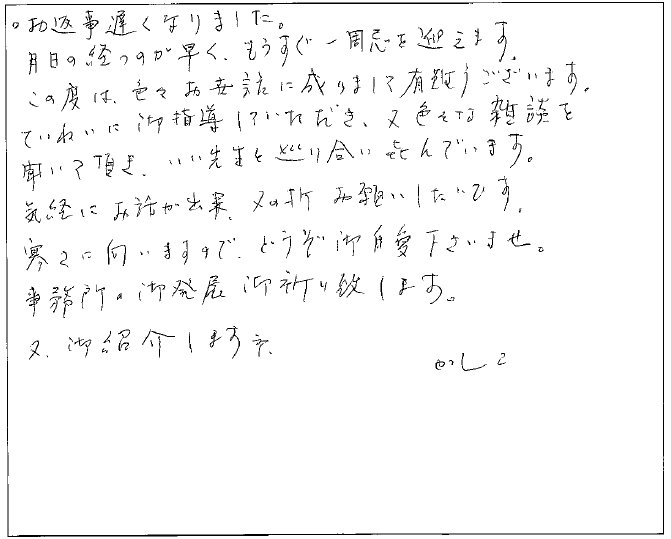 。お返事遅くなりました。
月日の経つのが早く、もうすぐ一周忌を迎えます。
この度は、色々お世話に成りまして有難うございます。
ていねいに御指導していただき、又色々な雑談を
聞いて頂き、いい先生と巡り合い喜んでいます。
気軽にお話が出来、又の折お願いしたいです。
寒さに向いますので、どうぞ御自愛下さいませ。
事務所の御発展御祈り致します。
又、御紹介しますネ。
かしこ